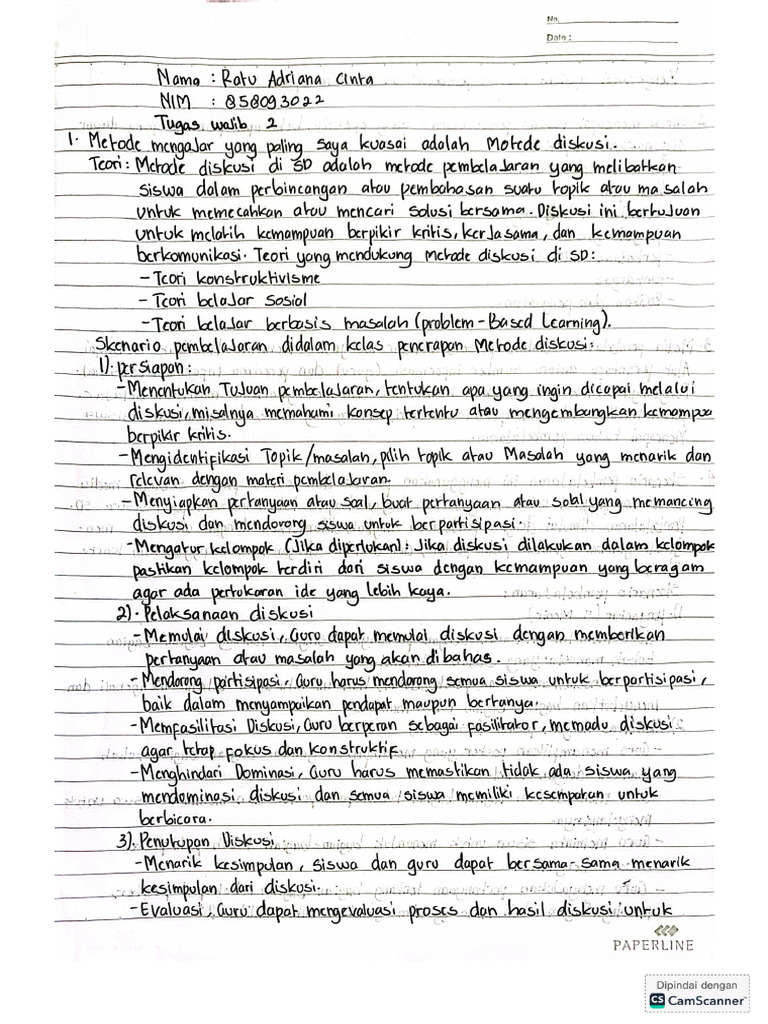 No.
Date :
Nama : Ratu Adriana Cinta
NIM : 858093022
Tugas wajib 2
1. Metode mengajar yang paling saya kuasai adalah Motede diskusi.
Teori : Metode diskusi di SD adalah metode pembelajaran yang melibatkan
siswa dalam perbincangan atau pembahasan suatu topik atau masalah
untuk memecahkan atau mencari solusi bersama. Diskusi ini bertujuan
untuk melatih kemampuan berpikir kritis, kerjasama, dan kemampuan
berkomunikasi. Teori yang mendukung Metode diskusi di SD:
- Teori konstruktivisme
- Teori belajar sosial
- Teori belajar berbasis masalah (problem-Based Learning).
Skenario pembelajaran didalam kelas penerapan Metode diskusi:
1). persiapan :
- Menentukan Tujuan pembelajaran, tentukan apa yang ingin dicapai melalui
diskusi, misalnya memahami konsep tertentu atau mengembangkan kemampua
berpikir kritis.
- Mengidentifikasi Topik/masalah, pilih topik atau Masalah yang menarik dan
relevan dengan materi pembelajaran.
- Menyiapkan pertanyaan atau soal, buat pertanyaan atau soal yang memancing
diskusi dan mendorong siswa untuk berpartisipasi.
- Mengatur kelompok (Jika diperlukan): Jika diskusi dilakukan dalam kelompok
pastikan kelompok terdiri dari siswa dengan kemampuan yang beragam
agar ada pertukaran ide yang lebih kaya.
2). Pelaksanaan diskusi
- Memulai diskusi, Guru dapat memulai diskusi dengan memberikan
pertanyaan atau masalah yang akan dibahas.
- Mendorong partisipasi, Guru harus mendorong semua siswa untuk berpartisipasi,
baik dalam menyampaikan pendapat maupun bertanya.
- Memfasilitasi Diskusi, Guru berperan sebagai fasilitator, memadu diskusi
agar tetap fokus dan konstruktif.
- Menghindari Dominasi, Guru harus memastikan tidak ada siswa yang
mendominasi diskusi dan semua siswa memiliki kesempatan untuk
berbicara.
3). Penutupan Diskusi
- Menarik kesimpulan, siswa dan guru dapat bersama-sama menarik
kesimpulan dari diskusi.
- Evaluasi, Guru dapat mengevaluasi proses dan hasil diskusi untuk
PAPERLINE
Dipindai dengan
CS CamScanner